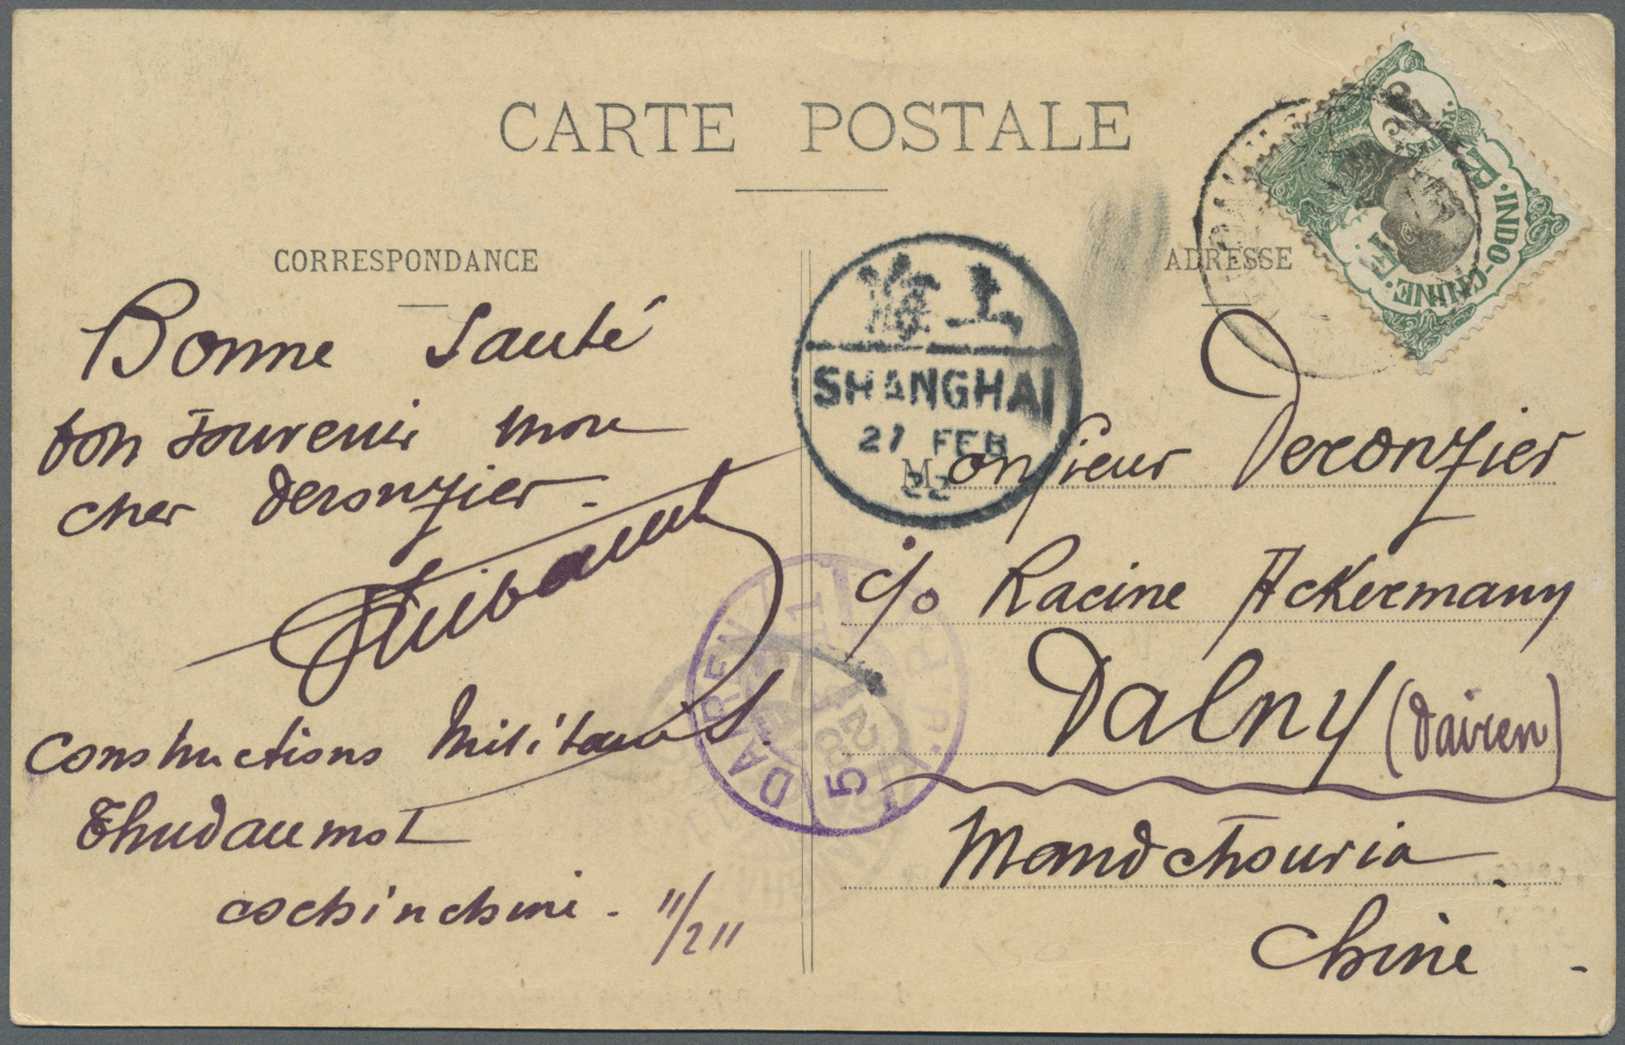 CARTE POSTALE
CORRESPONDANCE
Bonne Santé
bon souvenir mon
cher Deronzier.
Thibault
Constructions Militaires
Thudaumot
cochinchine. 11/2 11
上海
SHANGHAI
21 FEB
22
DAIREN
5
ADRESSE
INDO-CHINE
RF
Monsieur Deronzier
c/o Racine Ackermany
Dalny (Dairen)
Mandchouria
Chine